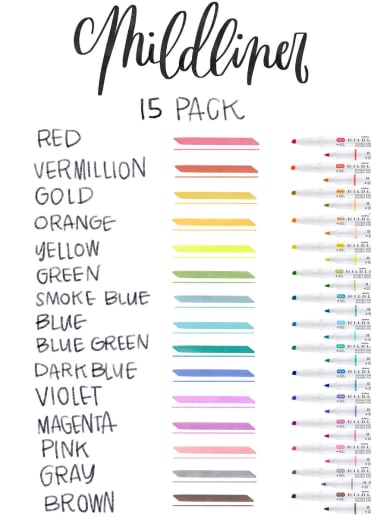 Mildliner
15 PACK
RED
VERMILLION
GOLD
ORANGE
YELLOW
GREEN
SMOKE BLUE
BLUE
BLUE GREEN
DARK BLUE
VIOLET
MAGENTA
PINK
GRAY
BROWN